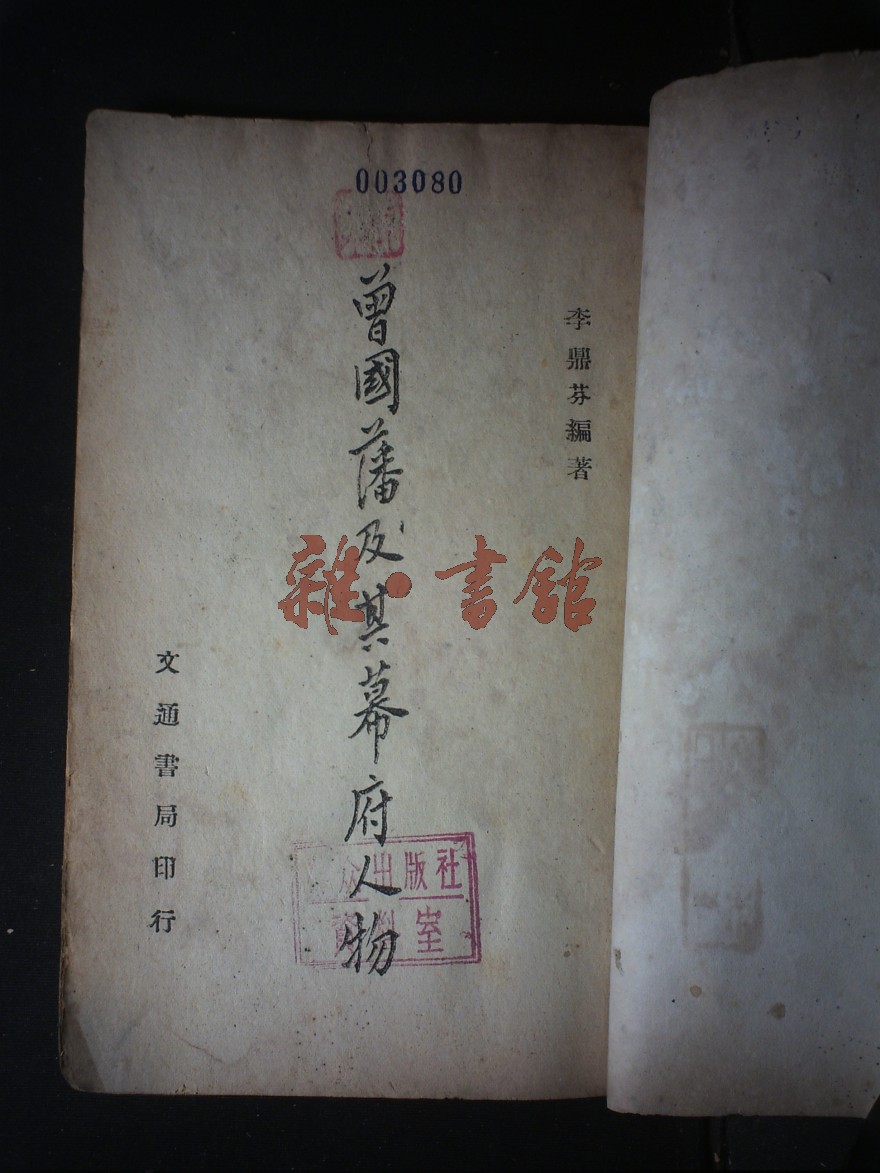 003080
李鼎芬編著
曾國藩及其幕府人物
文通書局印行
雜·書館
众出版社
資料室